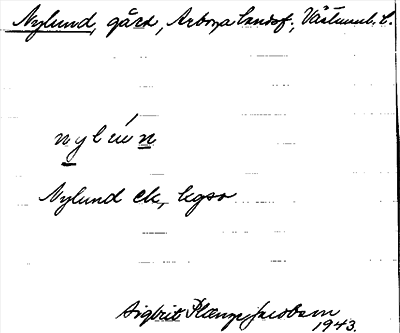 Nylund, gård, Arboga landsf., Västmanl. l.
nylún
Nylund ek, kgso
Sigbrit Plænge Jacobson
1943.